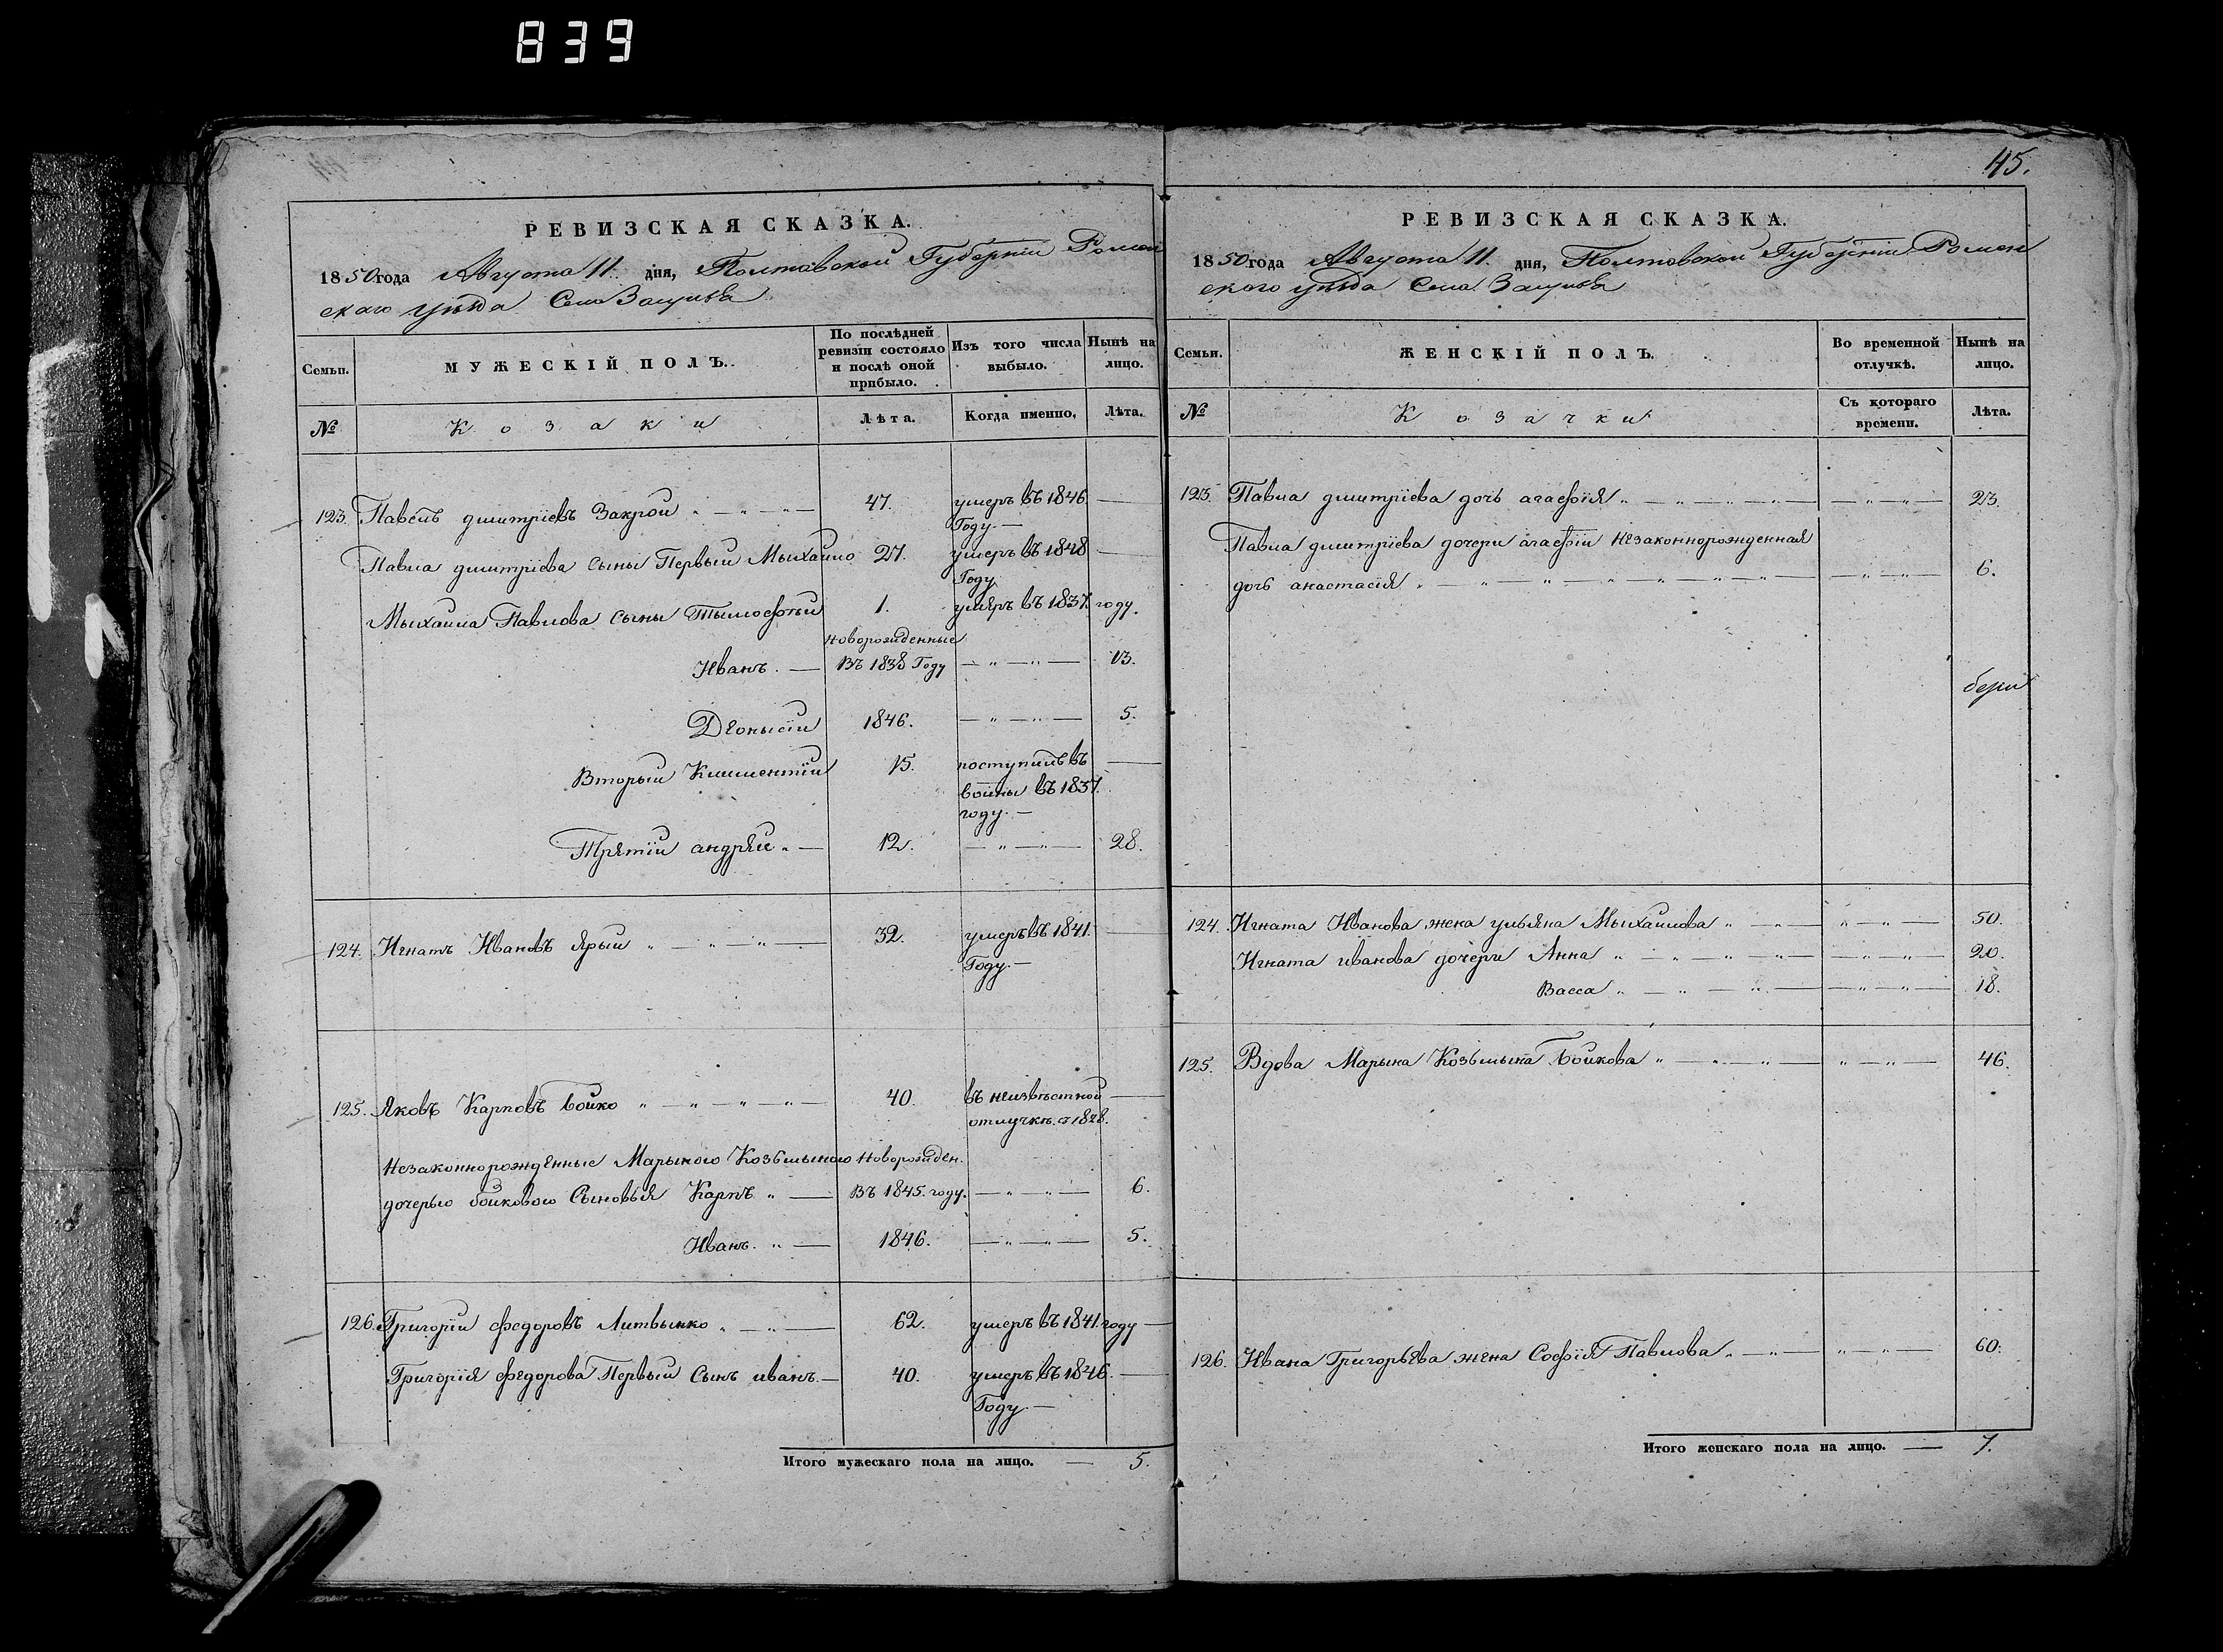 839
45.
РЕВИЗСКАЯ СКАЗКА.
1850 года Августа 11. дня, Полтавской Губерніи Ромен
скаго уѣзда Села
Семьи.
МУЖЕСКІЙ ПОЛЪ.
По послѣдней ревизіи состояло и послѣ оной прибыло.
Изъ того числа выбыло.
Нынѣ на лицо.
№
Козаки
Лѣта.
Когда именно.
Лѣта.
123. Павелъ дмитріевъ Закрой „ — „ — „ — 47. умеръ въ 1846 —
Году. —
Павла дмитріева сыны Первый Мыхайло 27. умеръ въ 1848 —
Году
Мыхайла Павлова сыны Тымофѣй 1. умеръ въ 1837. году.
Новорожденные
Иванъ. — Въ 1838 Году — „ — „ — 13.
Деонысій 1846. — „ — „ — 5.
Вторый Климентій 15. поступилъ въ —
войны въ 1837.
году. —
Третій андрей „ — 12. — „ — „ — 28.
124. Игнатъ Ивановъ Ярый „ — „ — „ — 32. умеръ въ 1841. —
Году. —
125. Яковъ Карповъ бойко „ — „ — „ — „ — 40. въ неизвѣстной —
отлучкѣ. с 1828.
Незаконнорожденные Марыною Козьмыною Новорожден.
дочерью бойковою Сыновья Карпъ „ — Въ 1845. году. — „ — „ — 6.
Иванъ. „ — 1846. — „ — „ — 5.
126. Григорій федоровъ Литвынко „ — „ — 62. умеръ въ 1841. году —
Григорія федорова Первый Сынъ иванъ. — 40. умеръ въ 1846. —
Году. —
Итого мужескаго пола на лицо. — 5.
РЕВИЗСКАЯ СКАЗКА.
1850 года Августа 11. дня, Полтовской Губерніи Ромен
скаго уѣзда Села
Семьи.
ЖЕНСКІЙ ПОЛЪ.
Во временной отлучкѣ.
Нынѣ на лицо.
№
Козачки
Съ котораго времени.
Лѣта.
123. Павла дмитріева дочь агафія „ — „ — „ — „ — — „ — „ — 23.
Павла дмитріева дочери агафіи незаконнорожденная
дочь анастасія „ — „ — „ — „ — „ — „ — „ — — „ — „ — 6.
124. Игната Иванова жена ульяна Мыхайлова „ — „ — „ — „ — 50.
Игната иванова дочери Анна „ — „ — „ — „ — — „ — „ — 20.
Васса „ — „ — „ — — „ — „ — 18.
125. Вдова Марына Козьмына Бойкова „ — „ — „ — „ — „ — 46.
126. Ивана Григорьева жена Софія Павлова „ — „ — „ — „ — 60.
Итого женскаго пола на лицо. — 7.